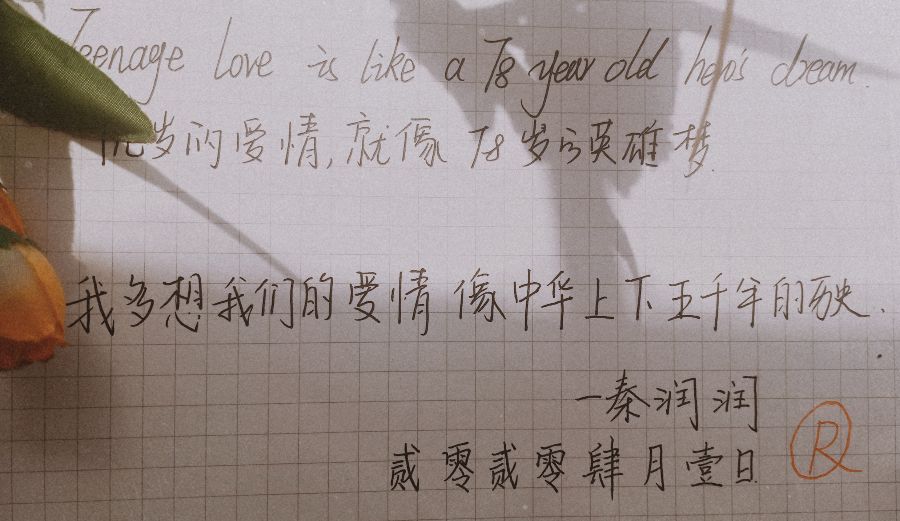 Teenage love is like a 78 year old hero's dream.
岁的爱情,就像 78 岁的英雄梦.
我多想我们的爱情 像中华上下五千年的历史.
—秦润润
贰零贰零肆月壹日
R